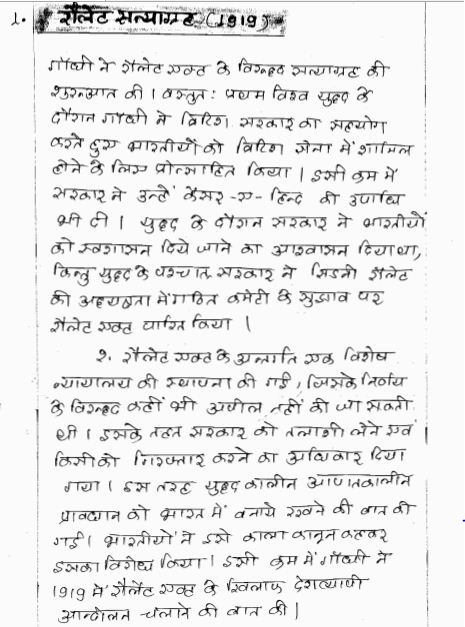 1. रौलेट सत्याग्रह (1919)
गाँधी ने रौलेट एक्ट के विरूद्ध सत्याग्रह की
शुरूआत की। वस्तुत: प्रथम विश्व युद्ध के
दौरान गाँधी ने ब्रिटिश सरकार का सहयोग
करते हुए भारतीयों को ब्रिटिश सेना में शामिल
होने के लिए प्रोत्साहित किया। इसी क्रम में
सरकार ने उन्हें कैसर-ए-हिन्द की उपाधि
भी दी। युद्ध के दौरान सरकार ने भारतीयों
को स्वशासन दिये जाने का आश्वासन दिया था,
किन्तु युद्ध के पश्चात सरकार ने सिडनी रौलेट
की अध्यक्षता में गठित कमेटी के सुझाव पर
रौलेट एक्ट पारित किया।
२. रौलेट एक्ट के अन्तर्गत एक विशेष
न्यायालय की स्थापना की गई, जिसके निर्णय
के विरूद्ध कहीं भी अपील नहीं की जा सकती
थी। इसके तहत सरकार को तलाशी लेने एवं
किसी को गिरफ्तार करने का अधिकार दिया
गया। इस तरह युद्ध कालीन आपातकालीन
प्रावधान को भारत में बनाये रखने की बात की
गई। भारतीयों ने इसे काला कानून कहकर
इसका विरोध किया। इसी क्रम में गाँधी ने
1919 में रौलेट एक्ट के खिलाफ देशव्यापी
आन्दोलन चलाने की बात की।